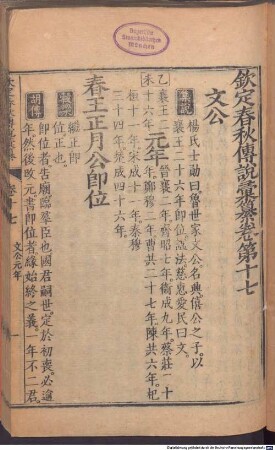 欽定春秋傳說彙纂卷第十七
文公
集說
楊氏士勛曰魯世家文公名興僖公之子以
襄王二十六年即位謚法慈惠愛民曰文
乙未
襄王二十六年
元年
晉襄二年齊昭七年衞成九年蔡莊二十
年鄭穆二年曹共二十七年陳共六年杞
桓十一年宋成十一年秦穆
三十四年楚成四十六年
春王正月公即位
穀梁傳
繼正即
位正也
胡傳
即位者告廟臨羣臣也國君嗣世定於初喪必逾
年然後改元書即位者緣始終之義一年不二君
文公元年
Bayerische
Staatsbibliothek
München